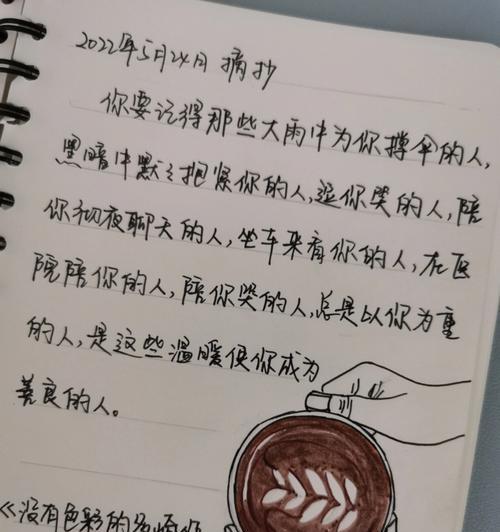 2022年5月24日 摘抄
你要记得那些大雨中为你撑伞的人,
黑暗中默々抱紧你的人,逗你笑的人,陪
你彻夜聊天的人,坐车来看你的人,在医
院陪你的人,陪你哭的人,总是以你为重
的人,是这些温暖使你成为
善良的人。
《没有色彩的